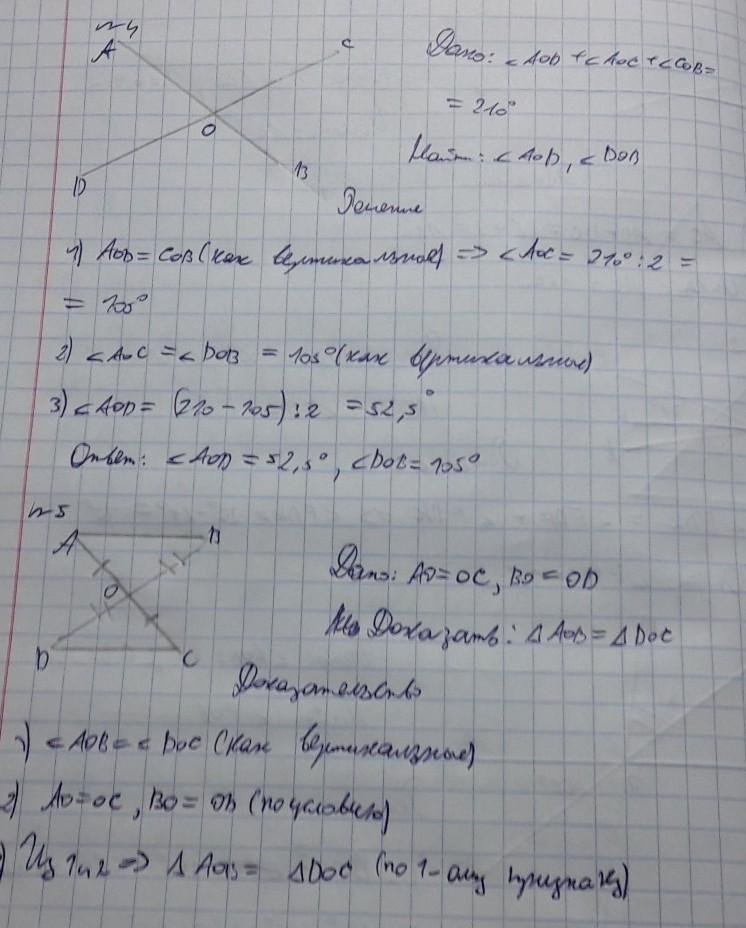 №4
A
C
O
D
B
Дано: ∠AOD + ∠AOC + ∠COB =
= 210°
Найти: ∠AOD, ∠DOB
Решение
1) AOD = COB (как вертикальные) => ∠AOC = 210° : 2 =
= 105°
2) ∠AOC = ∠DOB = 105° (как вертикальные)
3) ∠AOD = (210 - 105) : 2 = 52,5°
Ответ: ∠AOD = 52,5°, ∠DOB = 105°
№5
A
B
O
D
C
Дано: AO = OC, BO = OD
Доказать: ΔAOB = ΔDOC
Доказательство
1) ∠AOB = ∠DOC (как вертикальные)
2) AO = OC, BO = OD (по условию)
) Из 1 и 2 => ΔAOB = ΔDOC (по 1-ому признаку)